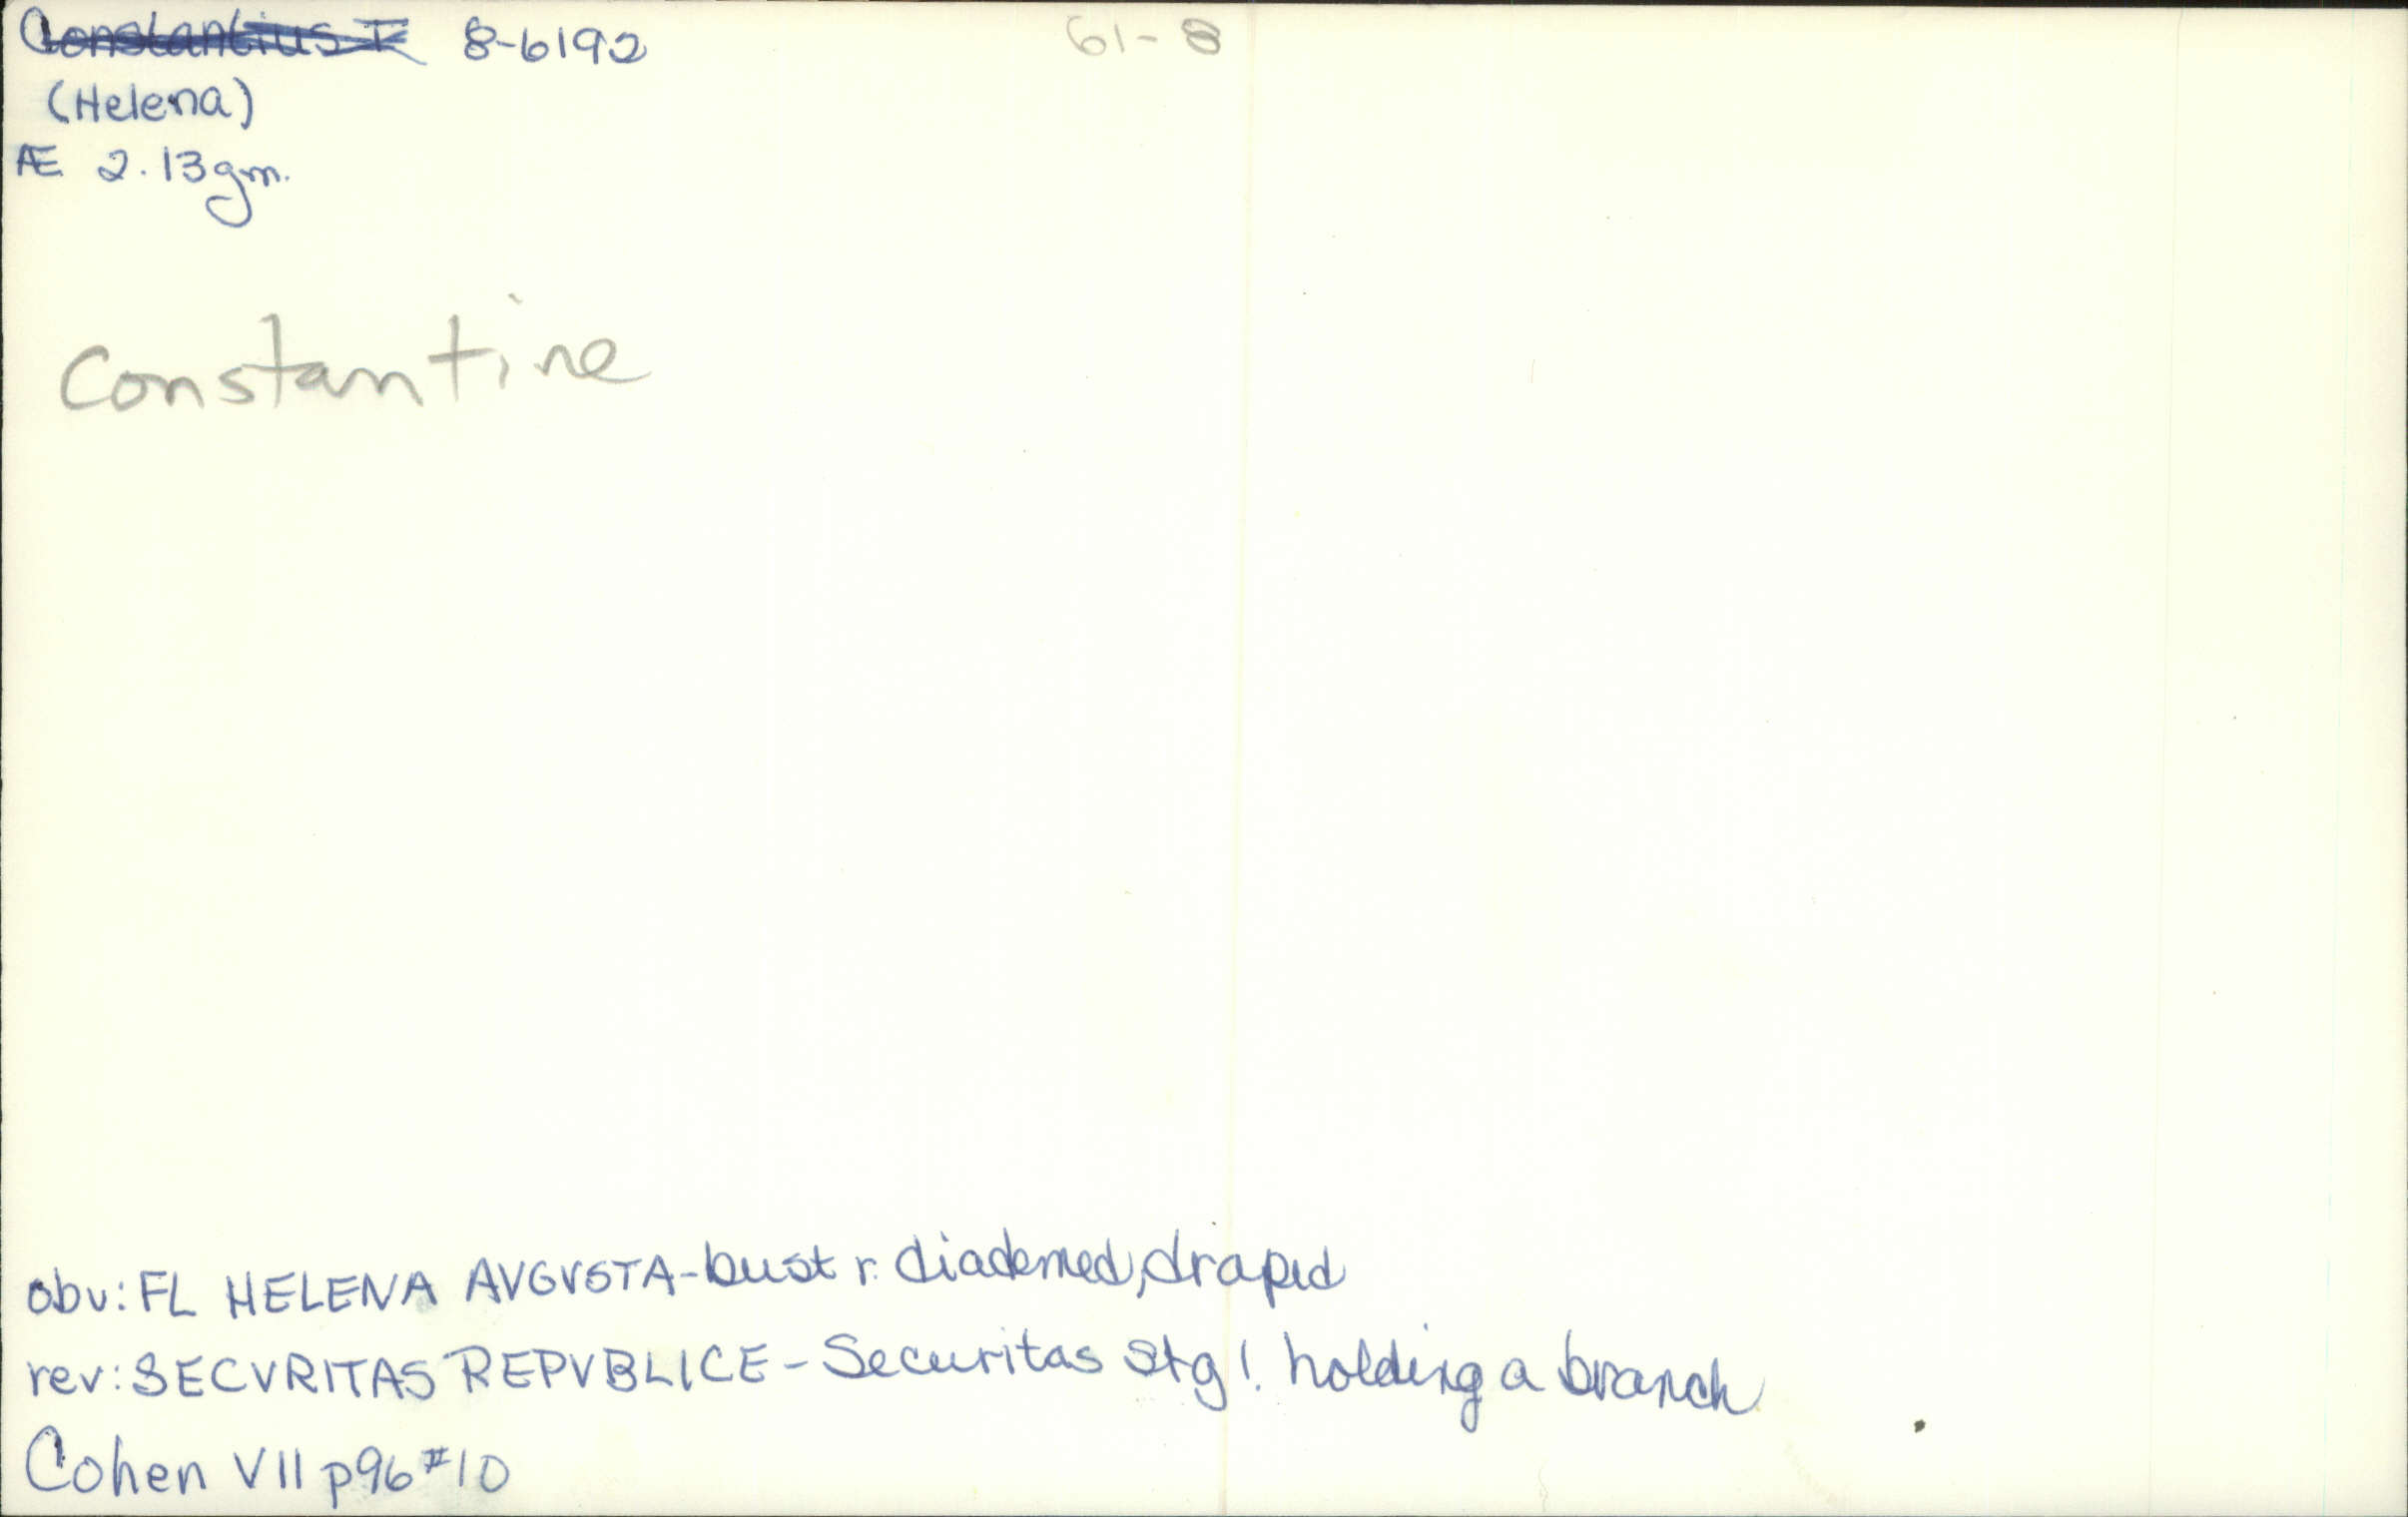 Constantius I 8-6192 61-8
(Helena)
Æ 2.13gm.
Constantine
obv: FL HELENA AVGVSTA-bust r. diademed, draped
rev: SECVRITAS REPVBLICE - Securitas stg l. holding a branch
Cohen VII p96 #10